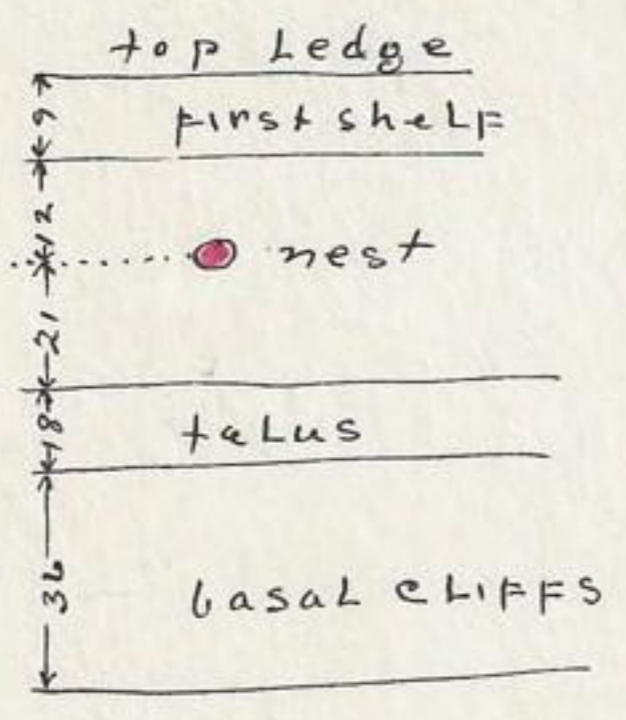 top Ledge
9
First sheLF
12
nest
21
18
taLus
36
basaL cLIFFS